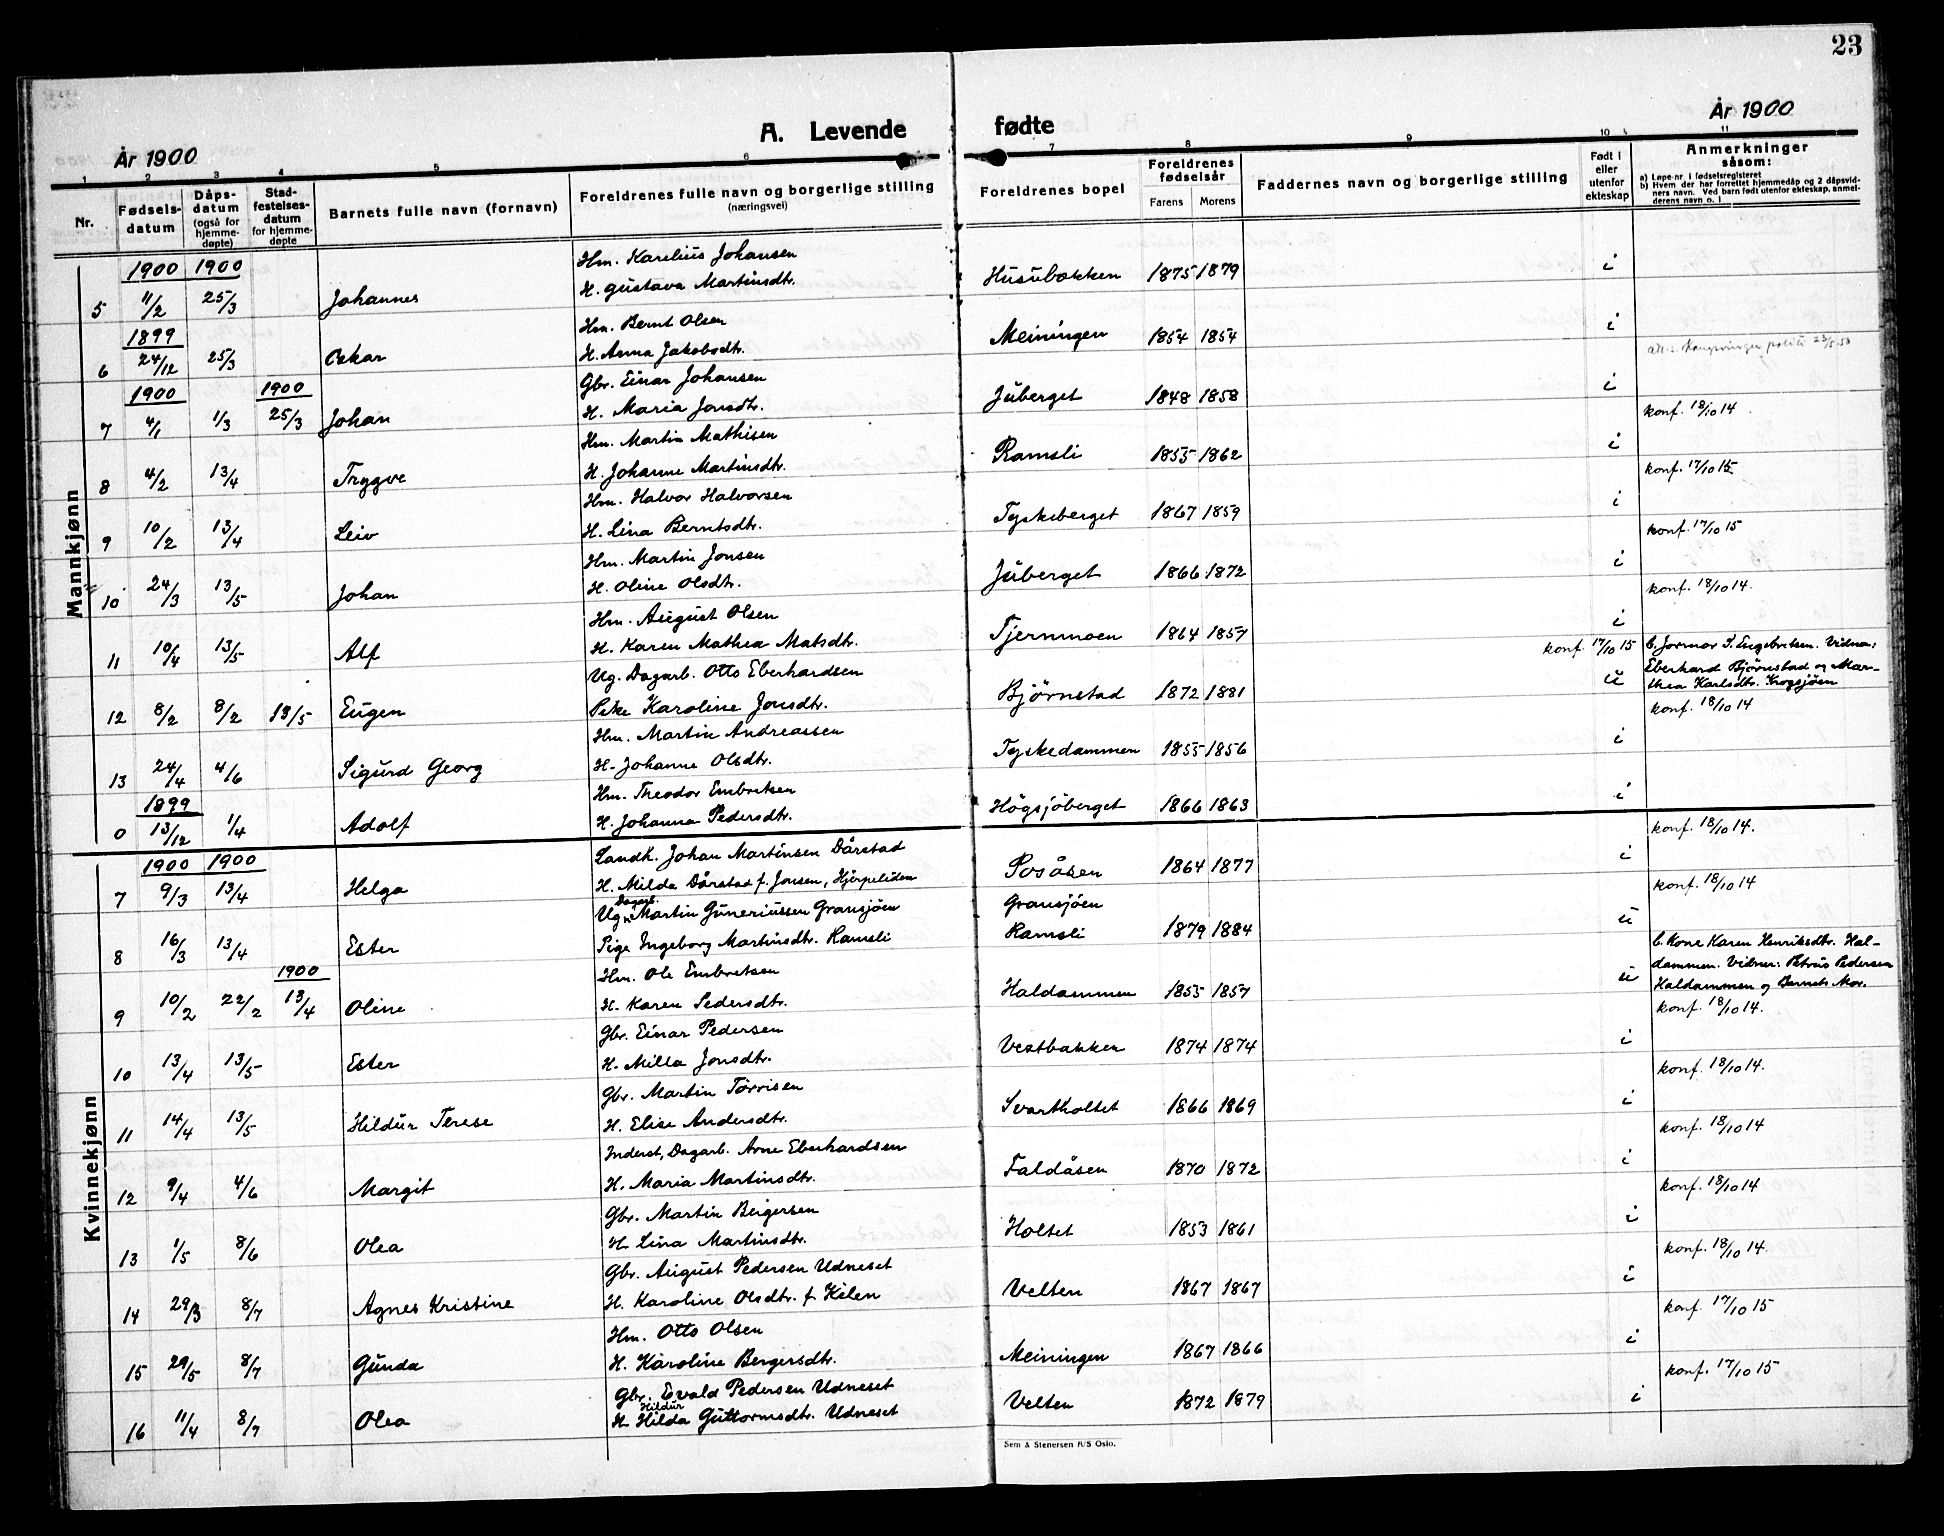 23
År 1900
A. Levende fødte
År 1900
1 2 3 4 5 6 7 8 9 10 11
Nr.
Fødsels-datum
Dåps-datum (også for hjemme-døpte)
Stad-festelses-datum for hjemme-døpte
Barnets fulle navn (fornavn)
Foreldrenes fulle navn og borgerlige stilling (næringsvei)
Foreldrenes bopel
Foreldrenes fødselsår
Farens Morens
Faddernes navn og borgerlige stilling
Født i eller utenfor ekteskap
Anmerkninger såsom:
a) Løpe-nr. i fødselsregisteret
b) Hvem der har forrettet hjemmedåp og 2 dåpsvidners navn. Ved barn født utenfor ekteskap, anmelderens navn o. l.
Mannkjønn
1900 1900
Hm. Karelius Johansen
5 11/2 25/3 Johannes H. Gustava Martinsdtr. Husubakken 1875 1879 i
1899
Hm. Bernt Olsen
6 24/12 25/3 Oskar H. Anna Jakobsdtr. Meiningen 1854 1854 i
1900 1900
Gbr. Einar Johansen
7 4/1 1/3 25/3 Johan H. Maria Jonsdtr. Juberget 1848 1858 i konf. 18/10 14
Hm. Martin Mathisen
8 4/2 13/4 Trygve H. Johanne Martinsdtr. Ramsli 1855 1862 i konf. 17/10 15
Hm. Halvor Halvorsen
9 10/2 13/4 Leiv H. Lina Berntsdtr. Tyskeberget 1867 1859 i konf. 17/10 15
Hm. Martin Jonsen
10 24/3 13/5 Johan H. Oline Olsdtr. Juberget 1866 1872 i konf. 18/10 14.
Hm. August Olsen
11 10/4 13/5 Alf H. Karen Mathea Matsdtr. Tjernmoen 1864 1857 i konf. 17/10 15
b. Jormar S. Engebretsen. Vidne: Eberhard Bjørnstad og Marthea Karlsdtr. Krogsjøen
Ug. Dagarb. Otto Eberhardsen
12 8/2 8/2 13/5 Eugen Pike Karoline Jonsdtr. Bjørnstad 1872 1881 u konf. 18/10 14
Hm. Martin Andreassen
13 24/4 4/6 Sigurd Georg H. Johanne Olsdtr. Tyskedammen 1855 1856 i
1899
Hm. Theodor Embretsen
0 13/12 1/4 Adolf H. Johanna Pedersdtr. Högsjöberget 1866 1863 i konf. 18/10 14.
Kvinnekjønn
1900 1900
Landh. Johan Martinsen Dårstad
7 9/3 13/4 Helga H. Milda Dårstad f. Jonsen, Hjerpeliden Posåsen 1864 1877 i konf. 18/10 14
Ug. Dagarb. Martin Guneriussen Gransjøen Gransjøen
8 16/3 13/4 Ester Pige Ingeborg Martinsdtr. Ramsli Ramsli 1879 1884 u
1900
b. Kone Karen Henriksdtr. Haldammen. Vidner: Petrus Pedersen Haldammen og Barnets Mor.
Hm. Ole Embretsen
9 10/2 22/2 13/4 Oline H. Karen Pedersdtr. Haldammen 1855 1857 u konf. 18/10 14.
Gbr. Einar Pedersen
10 13/4 13/5 Ester H. Milla Jonsdtr. Vestbakken 1874 1874 i konf. 18/10 14.
Gbr. Martin Torrisen
11 14/4 13/5 Hildur Terese H. Elise Andersdtr. Svartholtet 1866 1869 i konf. 18/10 14
Inderst, Dagarb. Arne Eberhardsen
12 9/4 4/6 Margit H. Maria Martinsdtr. Faldåsen 1870 1872 i konf. 18/10 14
Gbr. Martin Beigersen
13 1/5 8/6 Olea H. Lina Martinsdtr. Holtet 1853 1861 i konf. 18/10 14.
Gbr. August Pedersen Udneset
14 29/3 8/7 Agnes Kristine H. Karoline Olsdtr. f Kilen Velten 1867 1867 i konf. 17/10 15
Hm. Otto Olsen
15 29/5 8/7 Gunda H. Karoline Bergersdtr. Meiningen 1867 1866 i konf. 17/10 15
Gbr. Evald Pedersen Udneset
Hildur
16 11/4 8/7 Olea H. Hilda Guttormsdtr. Udneset Velten 1872 1879 i
Sem & Stenersen A/S Oslo.